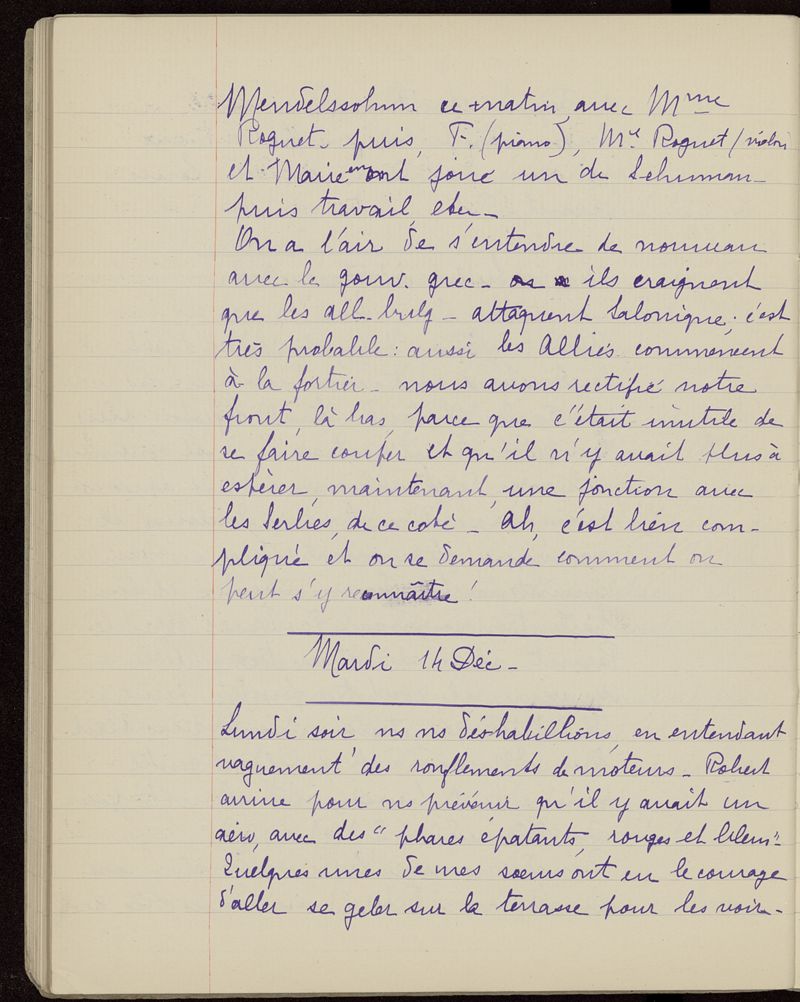 Mendelssohnn ce matin, avec Mme
Roguet. puis, F. (piano), Mle Roguet (violon
et Marie ont joué un de Schuman_
puis travail, etc_
On a l'air de s'entendre de nouveau
avec le gouv. grec_ ils craignent
que les all-bulg_ attaquent Salonique; c'est
très probable: aussi les Alliés commencent
à la fortier_ nous avons rectifié notre
front, là bas, parce que c'était inutile de
se faire couper et qu'il n'y avait plus à
espérer, maintenant, une jonction avec
les Serbes, de ce coté_ Ah, c'est bien com-
pliqué et on se demande comment on
peut s'y reconnaître!
Mardi 14 Déc_
Lundi soir ns ns déshabillions, en entendant
vaguement des ronflements de moteurs_ Robert
arrive pour ns prévenir qu'il y avait un
aéro, avec des "phares épatants, rouges et bleus"_
Quelques unes de mes soeurs ont eu le courage
d'aller se geler sur la terrasse pour les voir_